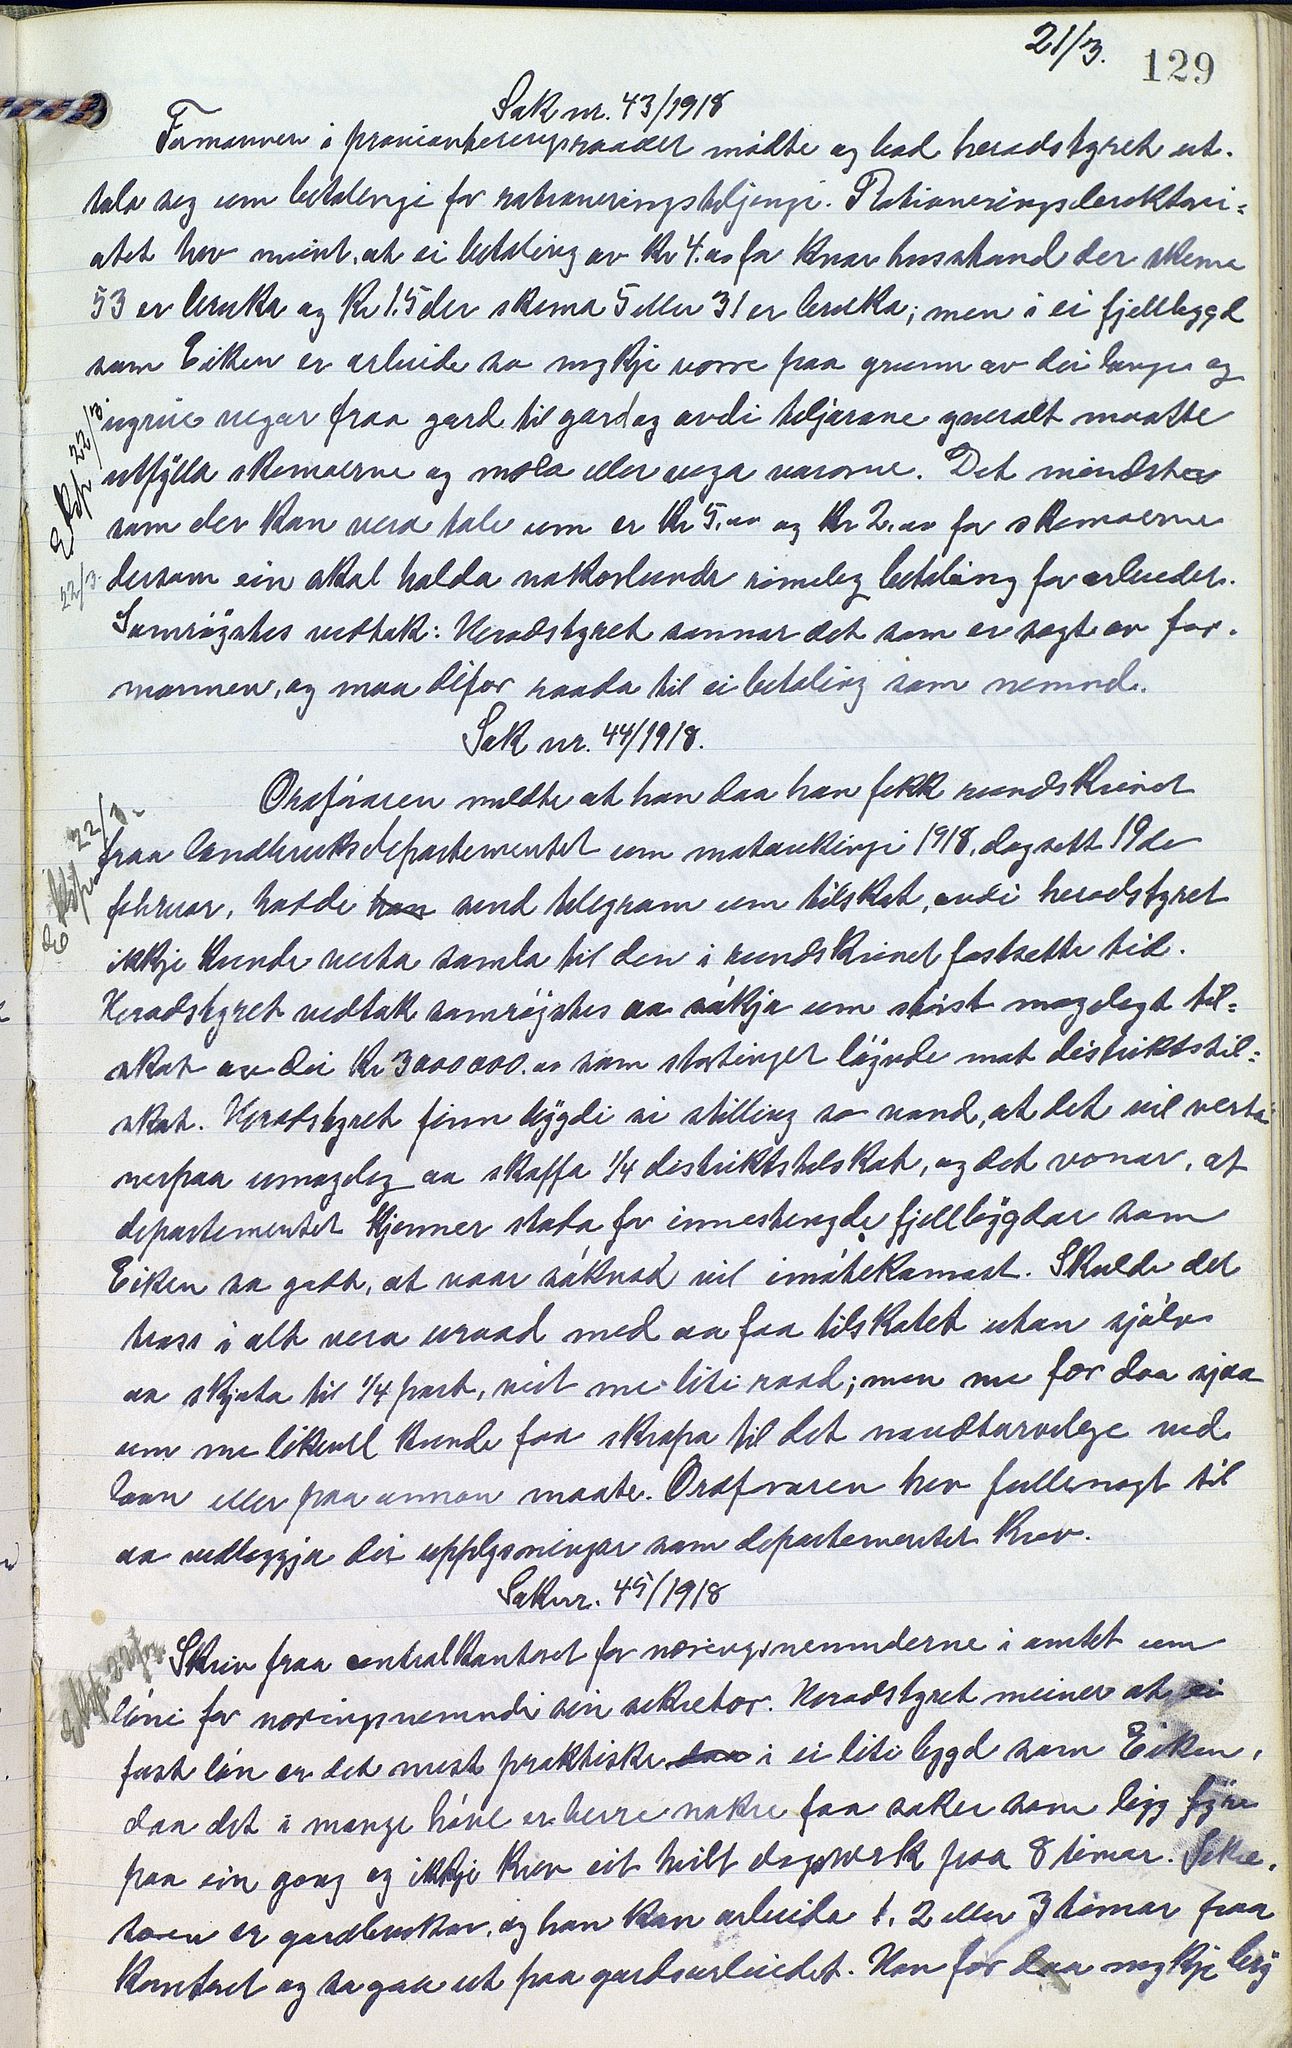 21/3.
129
Sak nr. 43/1918
Formannen i provianteringsraadet mødte og bad heradstyret ut-
tala seg um betalingi for rationeringsteljingi. Rationeringsdirektori-
atet hev meint, at ei betaling av Kr 4.00 for kvar husstand der skema
53 er bruka og Kr 1.5 der skema 5 eller 31 er bruka; men i ei fjellbygd
som Eiken er arbeide so mykje verre paa grunn av dei lange og
ugreie vegar fraa gard til gard og avdi teljarane generalt maatte
utfylla skemaerne og mæla eller vega varorne. Det mindste
som der kan vera tale um er Kr 5.00 og Kr 2.00 for skemaerne
dersom ein skal halda nokorlunde rimeleg betaling for arbeidet.
Samrøystes vedtak: Heradstyret sannar det som er sagt av for-
mannen, og maa difor raada til ei betaling som nemnd.
Eksp 22/3.
22/3.
Sak nr. 44/1918.
Ordføraren meldte at han daa han fekk rundskrivet
fraa landbruksdepartementet um mataukingi 1918, dagsett 19de
februar, hadde han send telegram um tilskot, avdi heradstyret
ikkje kunde verta samla til den i rundskrivet fastsette tid.
Heradstyret vedtok samrøystes aa søkja um størst mogelegt til-
skot av dei Kr 3000000.00 som stortinget løyvde mot distriktstil-
skot. Heradstyret finn bygdi si stilling so vand, at det vil verta
nerpaa umogeleg aa skaffa 1/4 distriktstilskot, og det vonar, at
departementet kjenner stoda for innestengde fjellbygdar som
Eiken so godt, at vaar søknad vil imøtekomast. Skulde det
trass i alt vera uraad med aa faa tilskotet utan sjølv
aa skjota til 1/4 part, veit me liti raad; men me fær daa sjaa
um me likevel kunde faa skrapa til det naudturvelege ved
laan eller paa annan maate. Ordføraren hev fullmagt til
aa vedleggja dei upplysningar som departementet krev.
Eksp 22/3.
Sak nr. 45/1918
Skriv fraa centralkontoret for næringsnemnderne i amtet um
løni for næringsnemndi sin sekretær. Heradstyret meiner at ei
fast løn er det mest praktiske i ei liti bygd som Eiken,
daa det i mange høve er berre nokre faa saker som ligg fyre
paa ein gong og ikkje krev eit heilt dagsverk paa 8 timar. Sekre-
tæren er gardbrukar, og han kan arbeida 1, 2 eller 3 timar paa
kontoret og so gaa ut paa gardsarbeidet. Han fær daa mykje
Eksp. 22/3